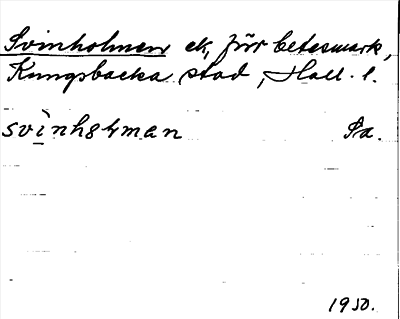 Svinholmen ek, förr betesmark,
Kungsbacka stad, Hall. l.
svìnhɞɬman Pa.
1950.